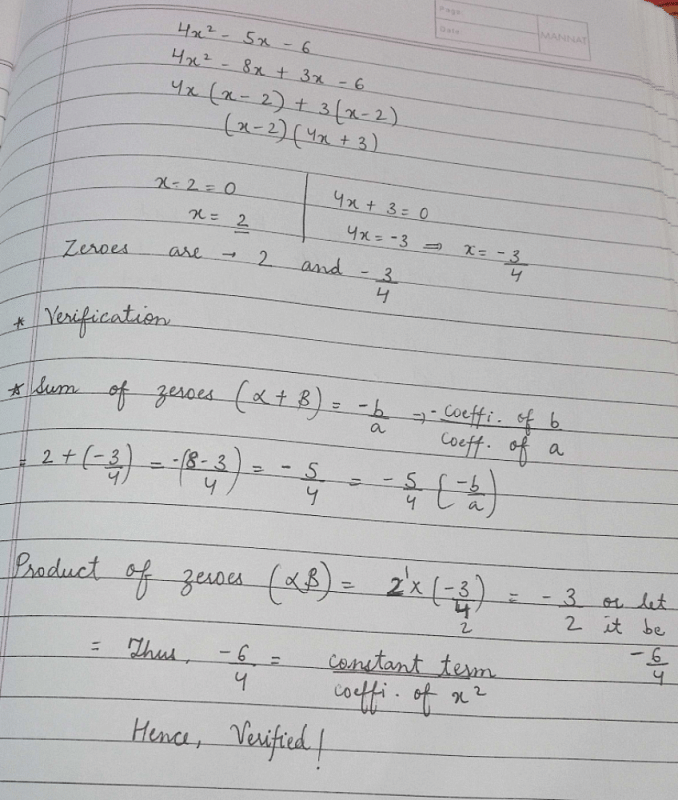 Page
Date
MANNAT
4x² - 5x - 6
4x² - 8x + 3x - 6
4x (x - 2) + 3(x - 2)
(x - 2) (4x + 3)
x - 2 = 0
x = 2
4x + 3 = 0
4x = -3 ⇒ x = -3/4
Zeroes are → 2 and -3/4
* Verification
* Sum of zeroes (α + β) = -b/a → -coeffi. of b / coeff. of a
= 2 + (-3/4) = -(8-3/4) = -5/4 = -5/4 (-b/a)
Product of zeroes (αβ) = 2¹ × (-3/4 2) = -3/2 or let it be -6/4
= Thus, -6/4 = constant term / coeffi. of x²
Hence, Verified!